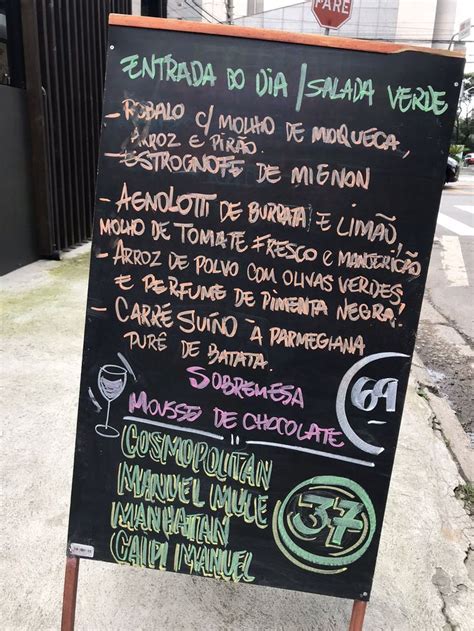 PARE
ENTRADA DO DIA / SALADA VERDE
- ROBALO C/ MOLHO DE MOQUECA,
ARROZ E PIRÃO.
- ESTROGNOFE DE MIGNON
- AGNOLOTTI DE BURRATA E LIMÃO,
MOLHO DE TOMATE FRESCO E MANJERICÃO
- ARROZ DE POLVO COM OLIVAS VERDES,
E PERFUME DE PIMENTA NEGRA.
- CARRÉ SUÍNO À PARMEGIANA
PURÊ DE BATATA.
SOBREMESA
MOUSSE DE CHOCOLATE
69
COSMOPOLITAN
MANUEL MULE
MANHATAN
CAIPI MANUEL
37